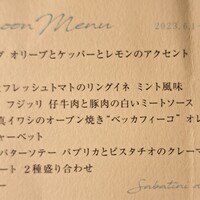 oon Menu 2023.6.
ブ オリーブとケッパーとレモンのアクセント
フレッシュトマトのリングイネ ミント風味
フジッリ 仔牛肉と豚肉の白いミートソース
真イワシのオーブン焼き“ベッカフィーコ” オレ
ャーベット
バターソテー パプリカとピスタチオのクレーマ
ート 2種盛り合わせ
ー
Sabatini